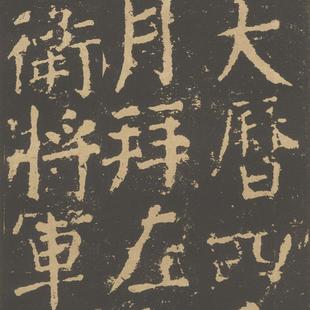 大曆
月拜左
衛將軍